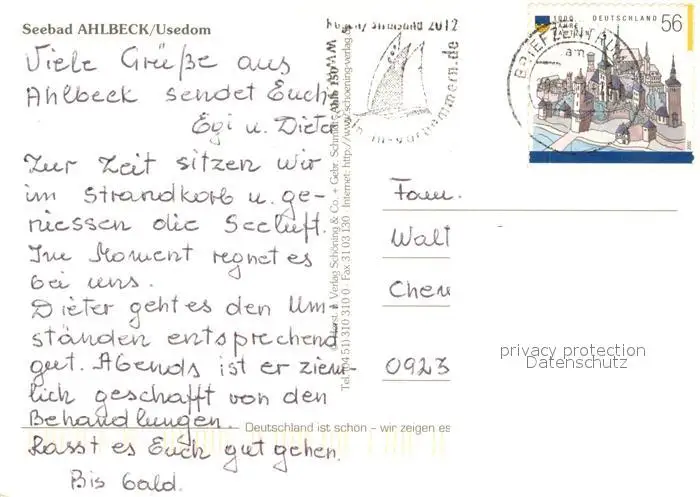 Seebad AHLBECK/Usedom
Viele Grüße aus
Ahlbeck sendet Euch
Egi u. Dieter
Zur Zeit sitzen wir
im Strandkorb u. ge-
niessen die Seeluft.
Im Moment regnet es
bei uns.
Dieter geht es den Um-
ständen entsprechend
gut. Abends ist er ziem-
lich geschafft von den
Behandlungen.
Lasst es Euch gut gehen.
Bis bald.
Verlag Schöning & Co. + Gebr. Schmidt
Tel. (04 51) 310 310 0 · Fax 31 03 130 · Internet: http://www.schoening-verlag
Rügen/Stralsund 2012
BRIEFZENTRUM
1000 JAHRE BAUTZEN
DEUTSCHLAND
56
Fam.
Walt
Chem
0923
Deutschland ist schön - wir zeigen es
privacy protection
Datenschutz